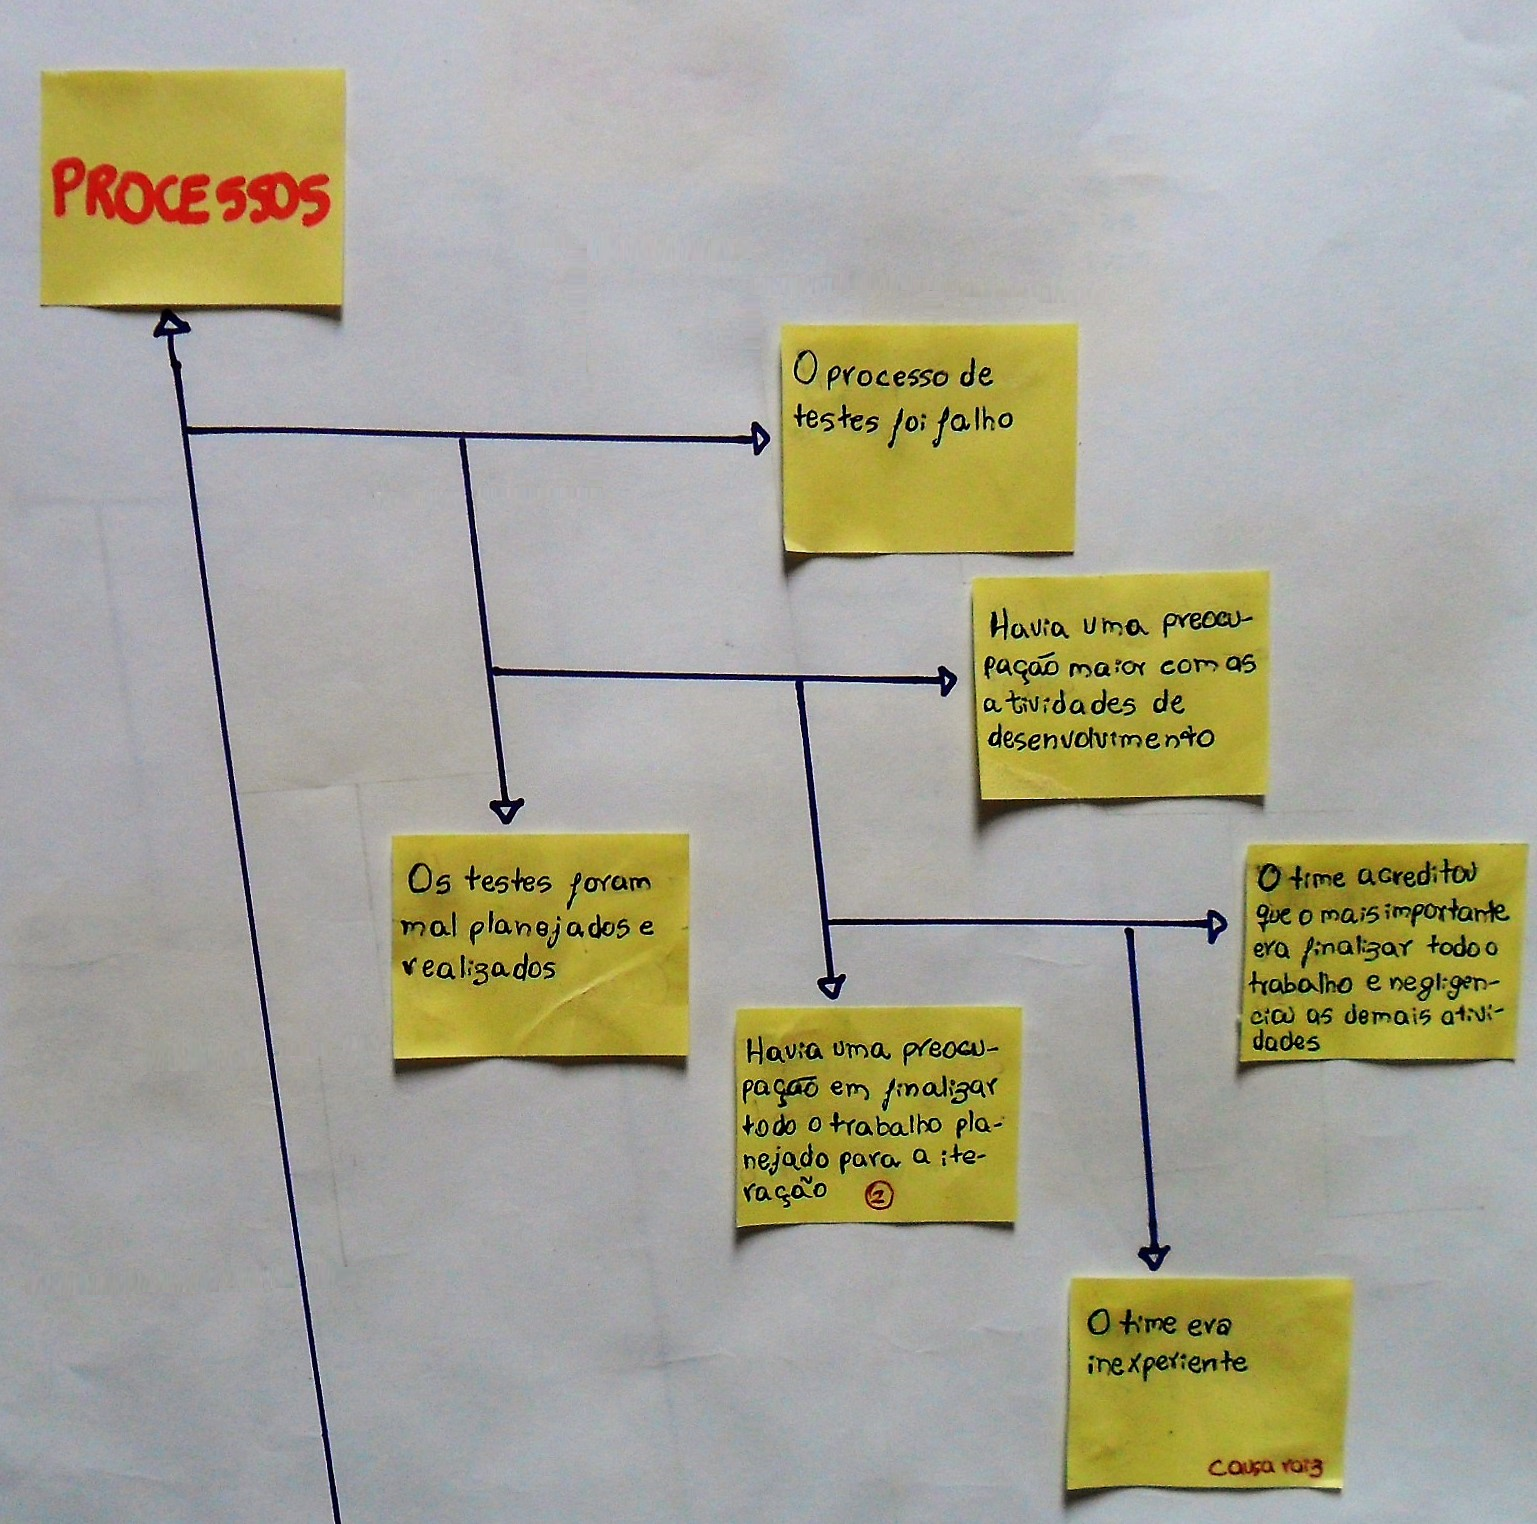 PROCESSOS
O processo de
testes foi falho
Havia uma preocu-
pação maior com as
atividades de
desenvolvimento
Os testes foram
mal planejados e
realizados
O time acreditou
que o mais importante
era finalizar todo o
trabalho e negligen-
ciou as demais ativi-
dades
Havia uma preocu-
pação em finalizar
todo o trabalho pla-
nejado para a ite-
ração 2
O time era
inexperiente
causa raiz